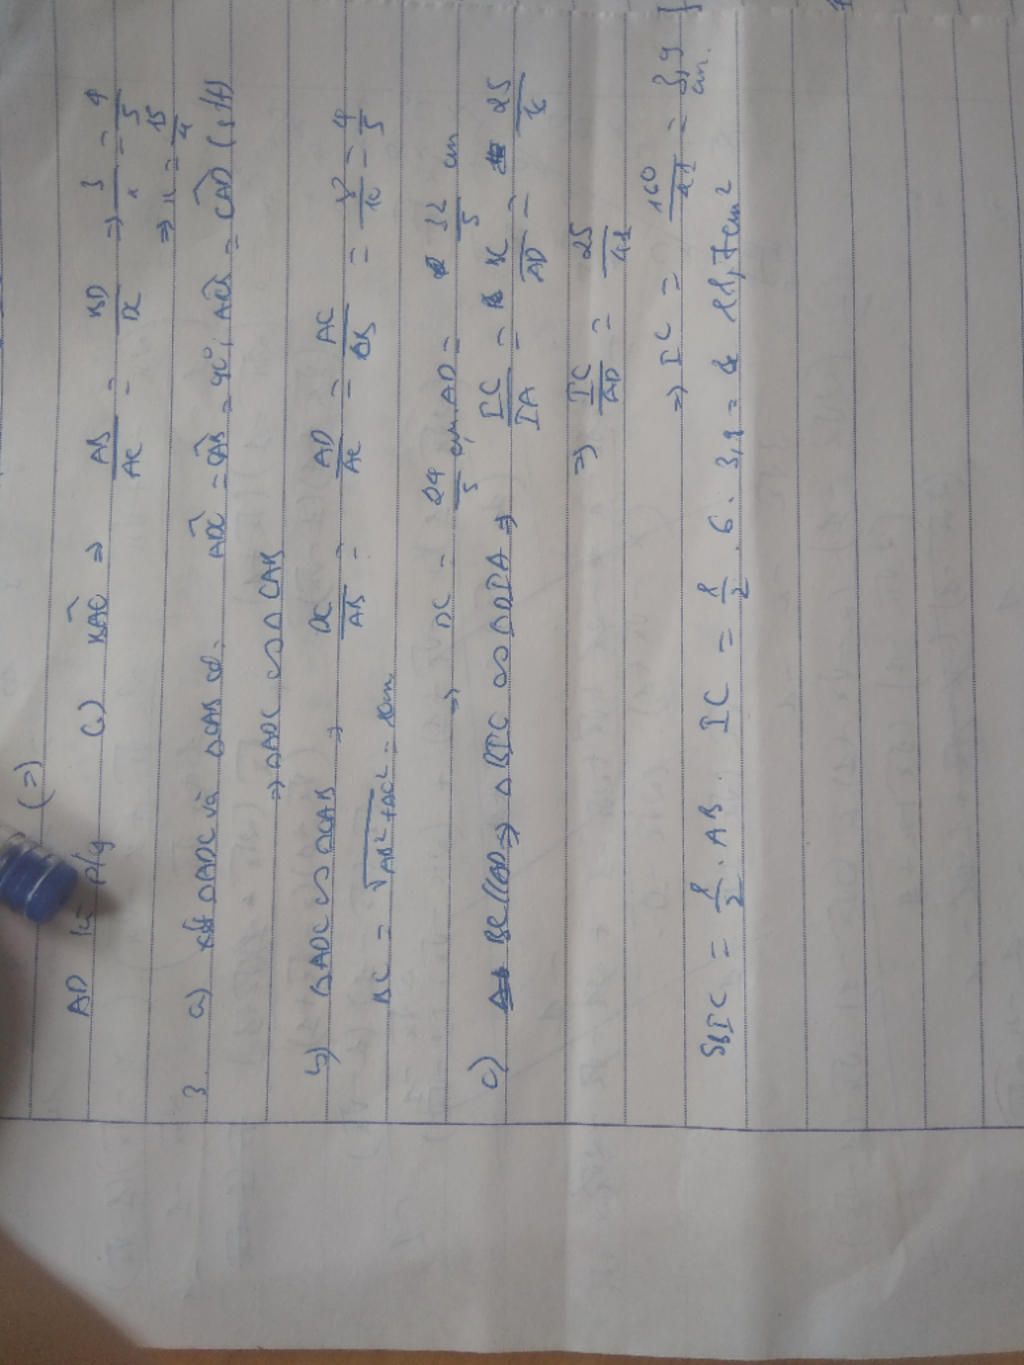 (=)
AD là p/g của \widehat{BAC} => \frac{AB}{AC} = \frac{BD}{DC} => \frac{3}{x} = \frac{4}{5}
=> x = \frac{15}{4}
3 a) Xét △ADC và △CAB có: \widehat{ADC} = \widehat{CAB} = 90°; \widehat{ACB} = \widehat{CAD} (slt)
=> △ADC ∽ △CAB
b) △ADC ∽ △CAB => \frac{DC}{AB} = \frac{AD}{AC} = \frac{AC}{CB} = \frac{8}{10} = \frac{4}{5}
BC = \sqrt{AB^2+AC^2} = 10cm
=> DC = \frac{24}{5} cm, AD = \frac{32}{5} cm
c) BC//AD => △BIC ∽ △DIA => \frac{IC}{IA} = \frac{BC}{AD} = \frac{25}{16}
=> \frac{IC}{AC} = \frac{25}{41}
=> IC = \frac{160}{41} = 3,9 cm.
SBIC = \frac{1}{2}. AB. IC = \frac{1}{2}. 6. 3,9 = 11,7cm^2